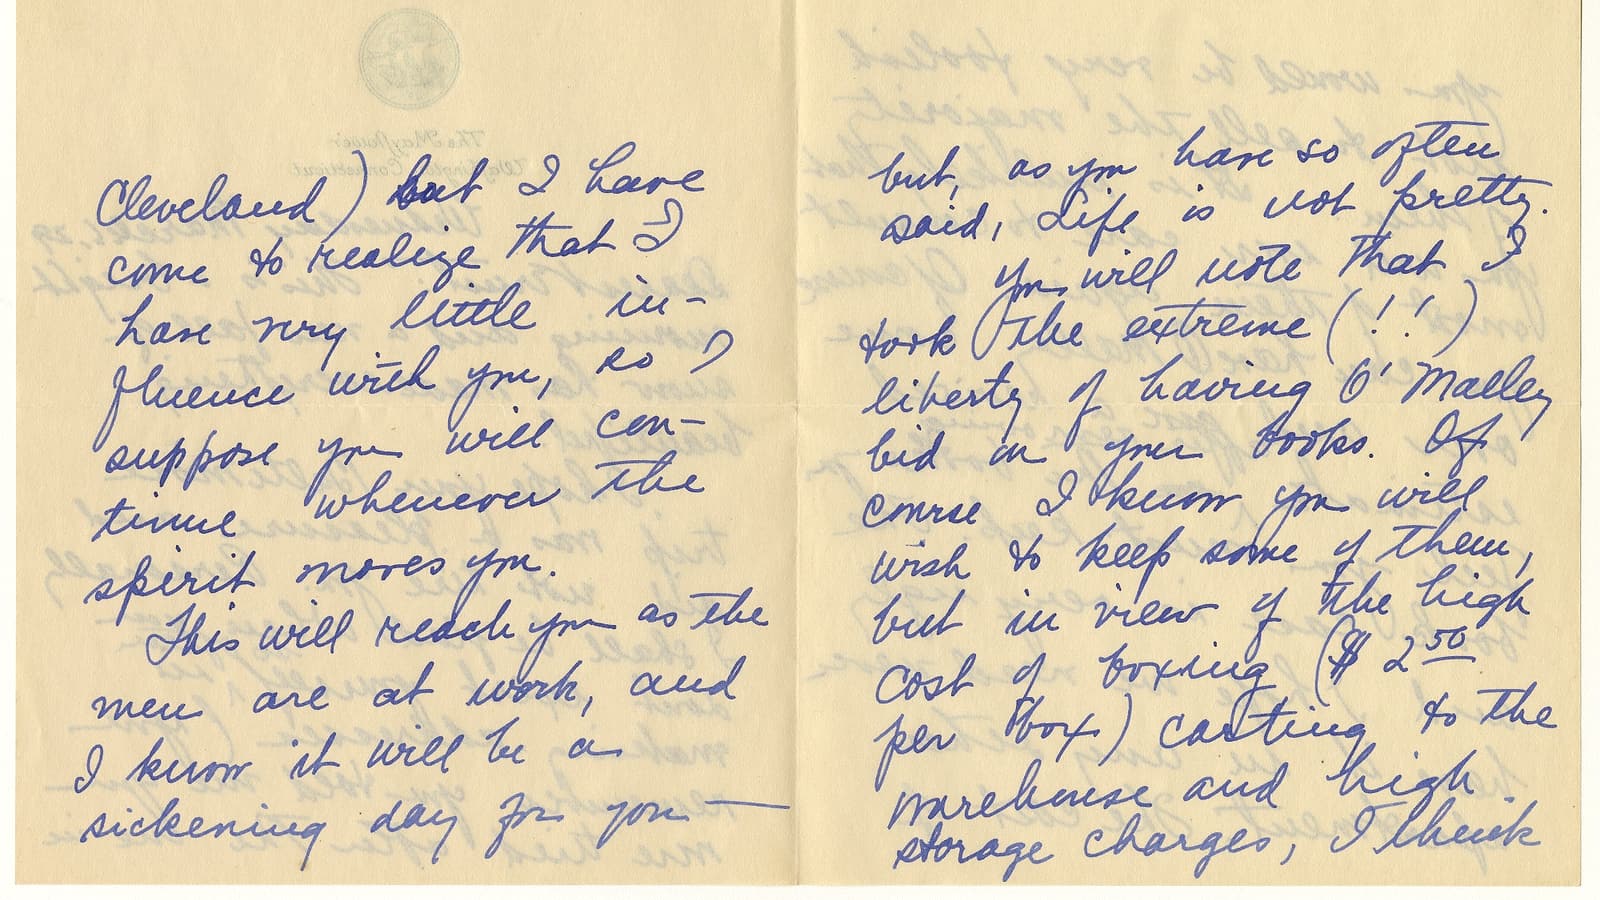 Cleveland) but I have
come to realize that I
have very little in-
fluence with you, so I
suppose you will con-
tinue whenever the
spirit moves you.
This will reach you as the
men are at work, and
I know it will be a
sickening day for you —
but, as you have so often
said, Life is not pretty.
You will note that I
took the extreme (!!)
liberty of having O'Malley
bid on your books. Of
course I know you will
wish to keep some of them,
but in view of the high
cost of boxing ($2.50
per box) carting to the
warehouse and high
storage charges, I think